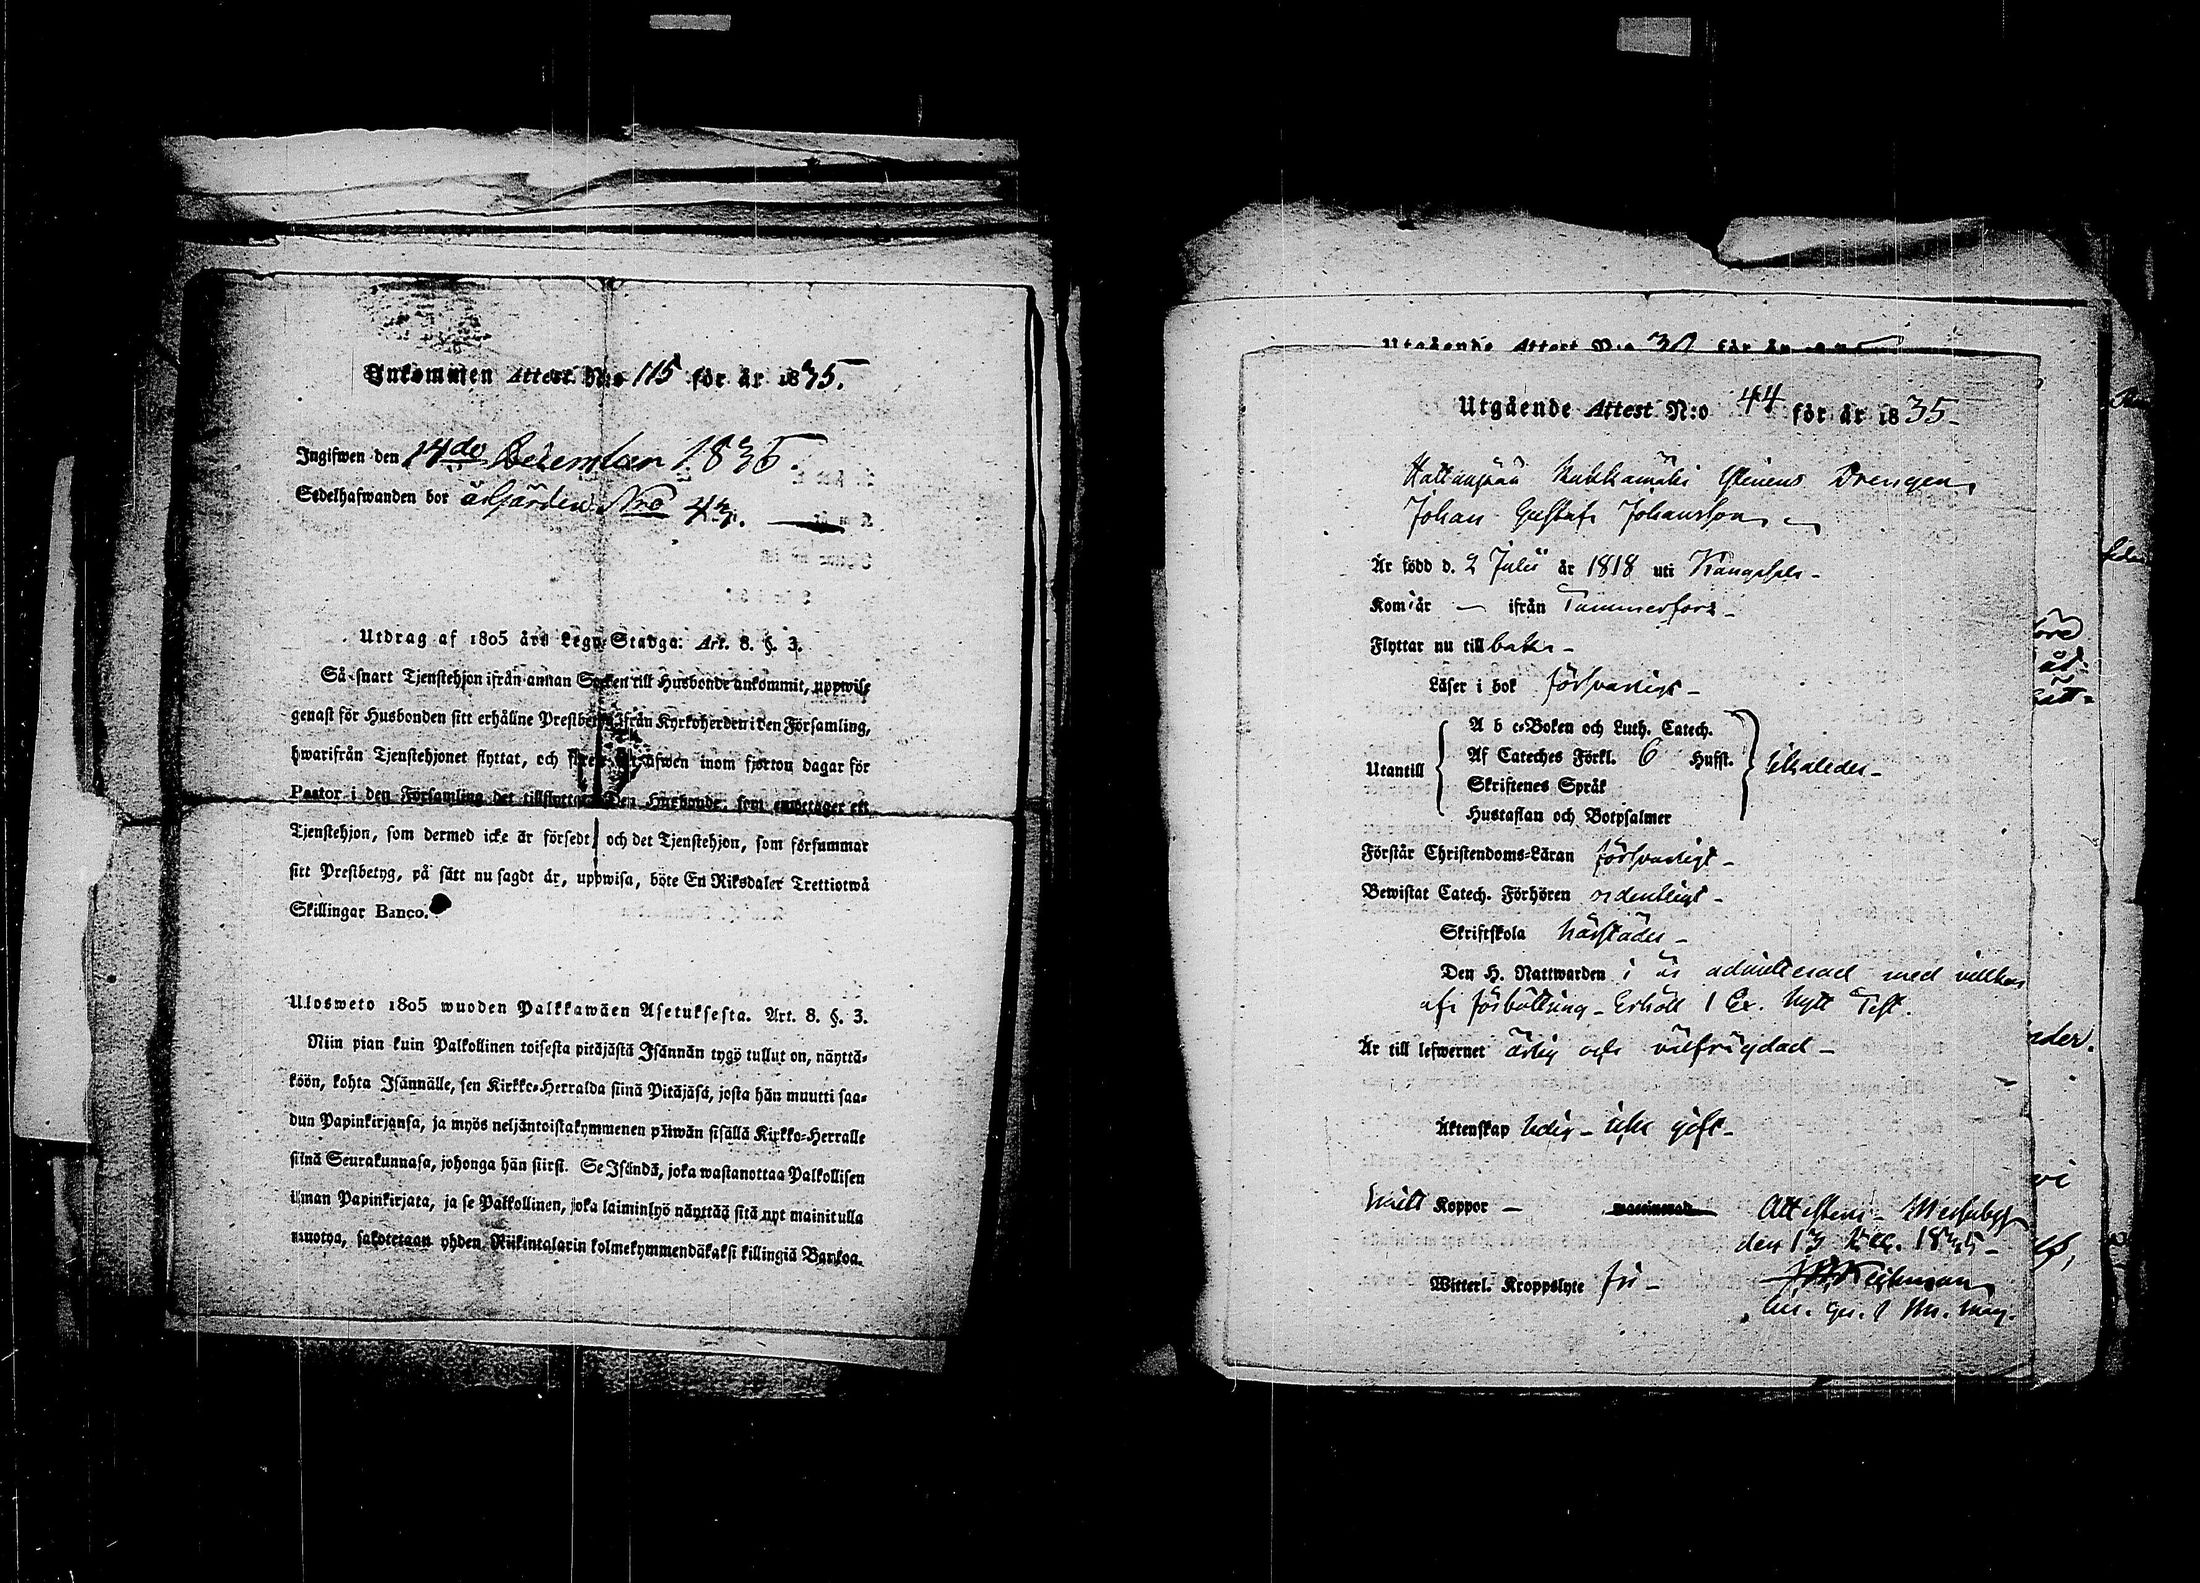 Inkommen Attest N:o 115 för år 1835.
Ingifwen den 14de December 1835.
Sedelhafwanden bor å Gården Nro 43.
Utdrag af 1805 års Lego-Stadga: Art. 8. §. 3.
Så snart Tjenstehjon ifrån annan Socken till Husbonde ankommit, uppwise
genast för Husbonden sitt erhållne Prestbetyg ifrån Kyrkoherden i den Församling,
hwarifrån Tjenstehjonet flyttat, och äfwen inom fjorton dagar för
Pastor i den Församling det tillflyttat. Den Husbonde, som emottager ett
Tjenstehjon, som dermed icke är försedt, och det Tjenstehjon, som försummar
sitt Prestbetyg, på sätt nu sagdt är, uppwisa, böte En Riksdaler Trettiotwå
Skillingar Banco.
Ulosweto 1805 wuoden Palkkawäen Asetuksesta. Art. 8. §. 3.
Niin pian kuin Palkollinen toisesta pitäjästä Isännän tygö tullut on, näyttä-
köön, kohta Isännälle, sen Kirkko-Herralda siinä Pitäjäsä, josta hän muutti saa-
dun Papinkirjansa, ja myös neljäntoistakymmenen päiwän sisällä Kirkko-Herralle
siinä Seurakunnasa, johonga hän siirsi. Se Isändä, joka wastanottaa Palkollisen
ilman Papinkirjata, ja se Palkollinen, joka laiminlyö näyttää sitä nyt mainitulla
muotoa, sakotetaan yhden Riikintalarin kolmekymmendäkaksi killingiä Bankoa.
Utgående Attest N:o 30 för år
Utgående Attest N:o 44 för år 1835
Drengen
Johan Gustaf Johansson
Är född d. 2 Julii år 1818 uti Kangasala
Kom år — ifrån Tammerfors
Flyttar nu tillbaka
Läser i bok försvarligt
A b c-Boken och Luth. Catech.
Utantill Af Cateches Förkl. 6 Hufst. likaledes
Skriftenes Språk
Hustaflan och Botpsalmer
Förstår Christendoms-Läran försvarligt
Bewistat Catech. Förhören ordentligt
Skriftskola härstädes
Den H. Nattwarden i år admitterad med villkor
af förbättring. Erhöll 1 Ex. Nytt Test.
Är till lefwernet ärlig och välfrägdad
Äktenskap ledig icke gift
haft Koppor — waccinerad
Attesteras Messuby
den 13 Dec. 1835
Witterl. Kroppslyte fri